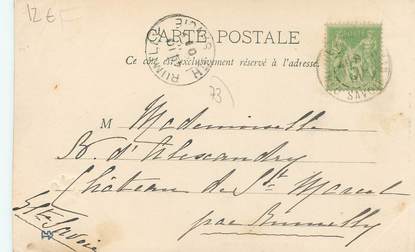 12€F
CARTE POSTALE
Ce côté est exclusivement réservé à l'adresse.
RUMILLY
73
M Mademoiselle
B. d'Alexandry
Château de St Marcel
par Rumilly
Hte Savoie